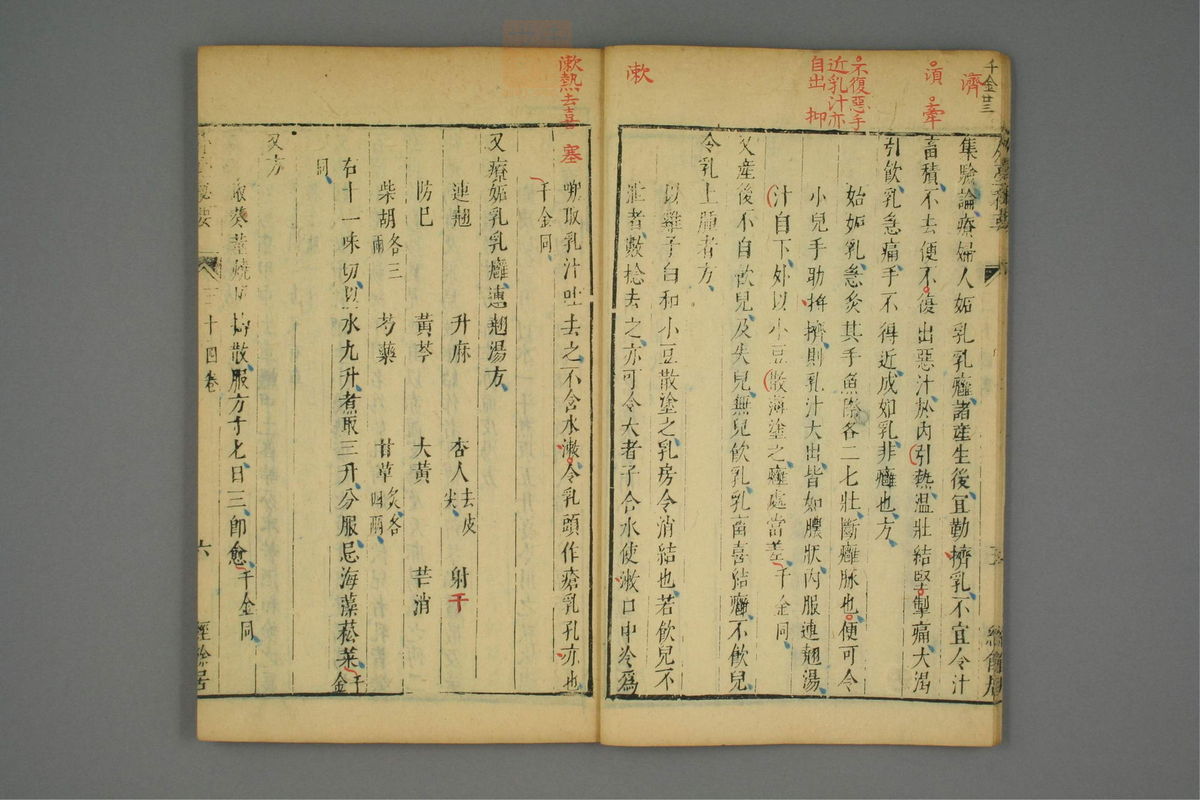 千金廿三
濟
滇 牽
不復惡手
近乳汁亦
自出 抑
漱
集驗論療婦人妬乳乳癰諸產生後宜勤擠乳不宜令汁
畜積不去便不復出惡汁於內引熱溫壯結堅掣痛大渴
引飲乳急痛手不得近成妬乳非癰也方
始妬乳急灸其手魚際各二七壯斷癰脉也便可令
小兒手助捋擠則乳汁大出皆如膿狀內服連翹湯
汁自下外以小豆散薄塗之癰處當差千金同
又產後不自飲兒及失兒無兒飲乳乳蓄喜結癰不飲兒
令乳上腫者方
以雞子白和小豆散塗之乳房令消結也若飲兒不
泄者數捻去之亦可令大者子含水使漱口中冷爲
漱熱去喜 塞
嗍取乳汁吐去之不含水漱令乳頭作瘡乳孔亦也
千金同
又療妬乳乳癰連翹湯方
連翹 升麻 杏人去皮尖 射干
防巳 黃芩 大黃 芒消
柴胡各三兩 芍藥 甘草炙各四兩
右十一味切以水九升煮取三升分服忌海藻菘菜千金
同
又方
取葵莖燒灰擣散服方寸匕日三即愈千金同
三十四卷 六 經餘居